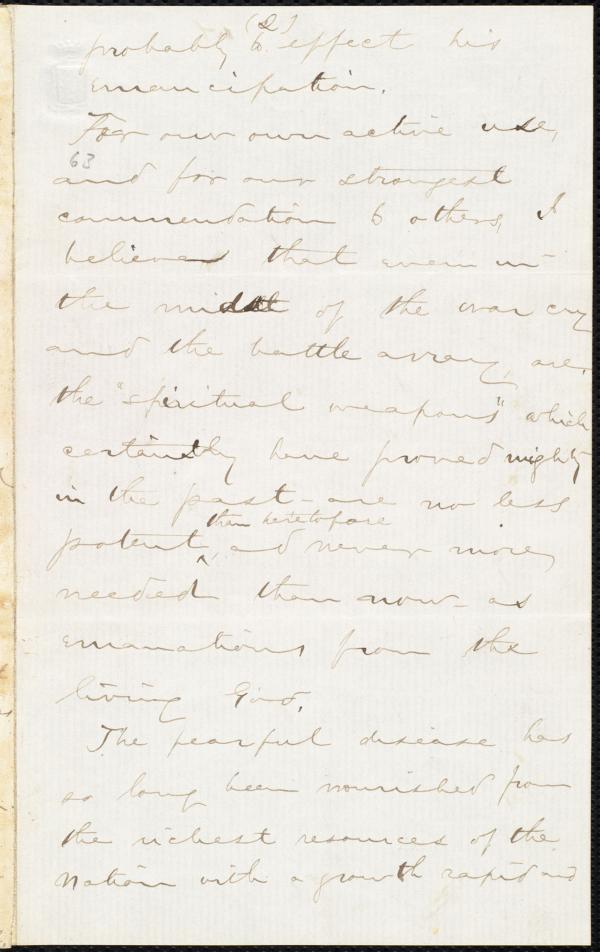 (2)
probably to effect his
emancipation.
For our own active use,
63
and for our strongest
commendation to others, I
believe that even in
the midst of the war cry
and the battle array, are
the "spiritual weapons" which
certainly have proved mighty
in the past - are no less
than heretofore
potent, and never more
needed than now - as
emanations from the
living God.
The fearful disease has
so long been nourished from
the richest resources of the
Nation with a growth rapid and